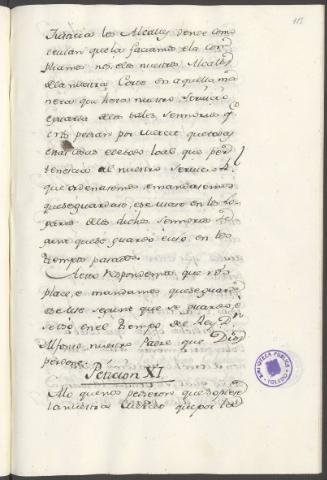 115
Justicia los Alcalles donde como
cutian que la façiamos e la con-
pliamos nos e los nuestros Alcalles
de la nuestra Corte en aquella ma-
nera que fuera nuestro servicio
e guarda de los tales sennorios e
en lo pedian por merced que todas
estas cosas e de todo lo al que per-
tenescia al nuestro servicio
que ordenasemos e mandasemos
que se guardase, e se usase en los lo-
gares de los dichos sennorios se-
gunt que se guardó e usó en los
tiempos pasados.
A esto respondemos que nos
place, e mandamos que se guarde
e se use segunt que se guardó, e
se usó en el tiempo de el Rey Dn
Alfonso nuestro Padre que Dios
perdone.
Peticion XI
A lo que nos pedieron que sopiese
la nuestra merced que por los
BIBLIOTECA PUBLICA
TOLEDO